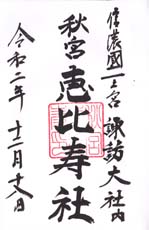 信濃國一之宮 諏訪大社内
秋宮 恵比寿社
令和二年 十二月